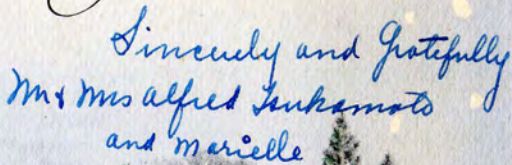 Sincerely and Gratefully
Mr & Mrs Alfred Tsukamoto
and Marielle